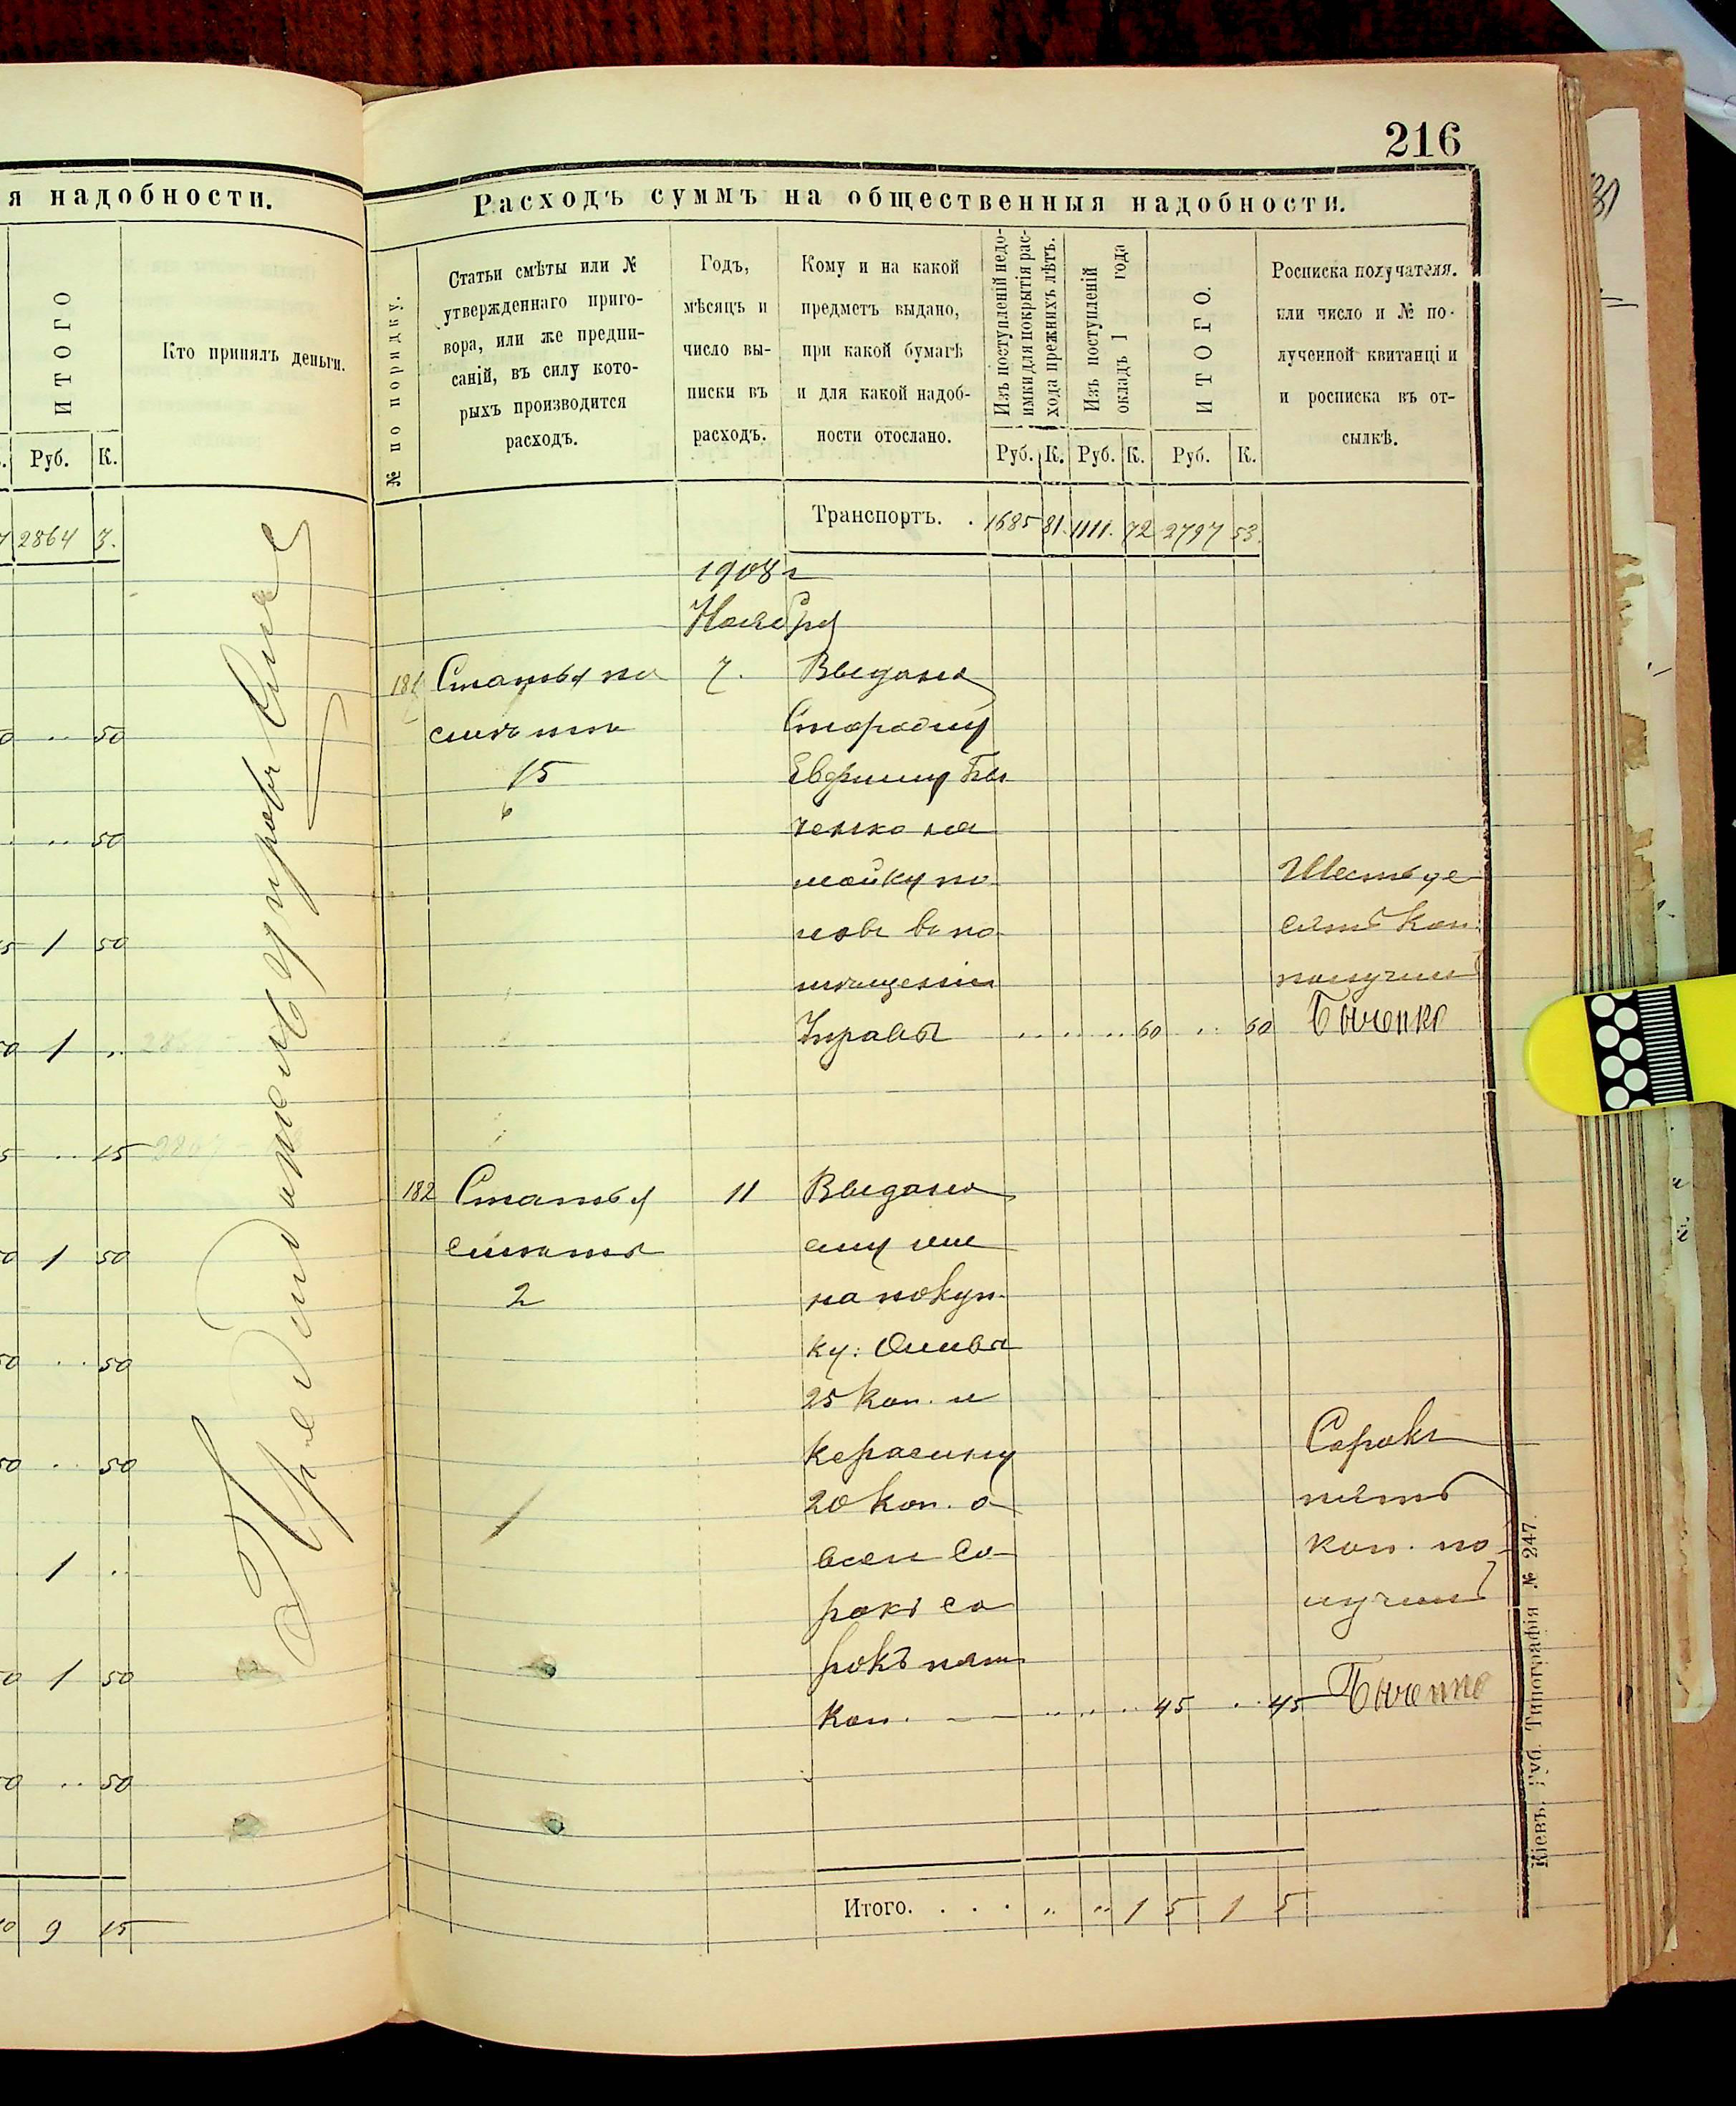 я надобности.
ИТОГО
Кто принялъ деньги.
Руб. К.
2864 3.
.. 50
.. 50
1 50
1 ..
.. 15
1 50
.. 50
.. 50
1 ..
1 50
.. 50
9 15
216
Расходъ суммъ на общественныя надобности.
№ по порядку.
Статьи смѣты или №
утвержденнаго приго-
вора, или же предпи-
саній, въ силу кото-
рыхъ производится
расходъ.
Годъ,
мѣсяцъ и
число вы-
писки въ
расходъ.
Кому и на какой
предметъ выдано,
при какой бумагѣ
и для какой надоб-
ности отослано.
Изъ поступленій недо-
имки для покрытія рас-
хода прежнихъ лѣтъ.
Изъ поступленій
окладъ 1 года
ИТОГО.
Росписка получателя.
или число и № по-
лученной квитанціи
и росписка въ от-
сылкѣ.
Руб. К. Руб. К. Руб. К.
Транспортъ. . 1685 81. 1111. 72 2797 53.
1908 г
Ноября
181 Статья по 7. Выдано
смѣтѣ Сторожу
15 Ефиму Бы
ченко на
мойку по
ловъ въ по
мѣщеніи
Управы 60 .. 60
Шестьде
сятъ коп.
получилъ
Быченко
182 Статья 11 Выдано
смѣты ему же
2 на покуп
ку: Оливы
25 коп. и
керасину
20 коп. а
всего со
рокъ со
рокъ пять
коп. 45 . 45
Сорокъ
пять
коп. по
лучилъ
Быченко
Итого. . . . " " 1 5 1 5
Кіевъ. Губ. Типографія № 247.